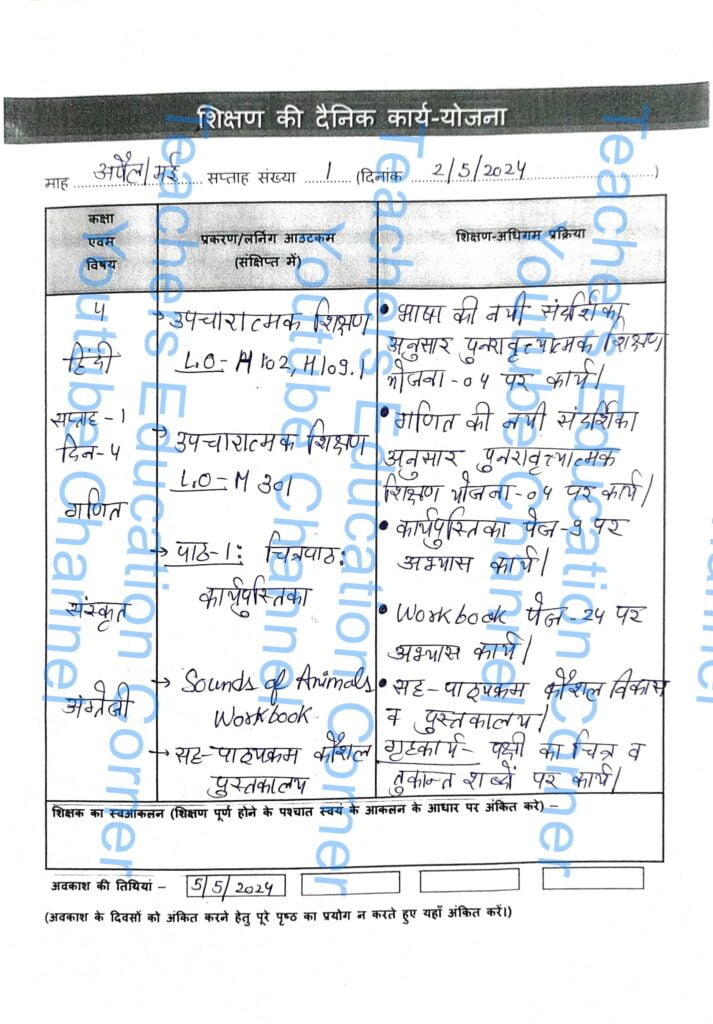 शिक्षण की दैनिक कार्य-योजना
माह अप्रैल/मई सप्ताह संख्या 1 (दिनांक 2/5/2024)
कक्षा
एवम
विषय
प्रकरण/लर्निग आउटकम
(संक्षिप्त में)
शिक्षण-अधिगम प्रक्रिया
हिंदी
सप्ताह -1
दिन-4
गणित
संस्कृत
अंग्रेजी
→ उपचारात्मक शिक्षण
L.O- H 102, H 109.1
→ उपचारात्मक शिक्षण
L.O- M 301
→ पाठ-1: चित्रपाठ:
कार्यपुस्तिका
→ Sounds of Animals
Workbook
→ सह-पाठ्यक्रम कौशल
पुस्तकालय
• भाषा की नयी संदर्शिका
अनुसार पुनरावृत्यात्मक शिक्षण
योजना-04 पर कार्य।
• गणित की नयी संदर्शिका
अनुसार पुनरावृत्यात्मक
शिक्षण योजना-04 पर कार्य।
• कार्यपुस्तिका पेज-9 पर
अभ्यास कार्य।
• Workbook पेज-24 पर
अभ्यास कार्य।
• सह-पाठ्यक्रम कौशल विकास
व पुस्तकालय।
गृहकार्य- पक्षी का चित्र व
तुकान्त शब्दों पर कार्य।
शिक्षक का स्वआकलन (शिक्षण पूर्ण होने के पश्चात स्वयं के आकलन के आधार पर अंकित करे) –
अवकाश की तिथियां – 5/5/2024
(अवकाश के दिवसों को अंकित करने हेतु पूरे पृष्ठ का प्रयोग न करते हुए यहाँ अंकित करें।)
Teachers Education Corner
Youtube Channel
Teachers Education Corner
Youtube Channel
Teachers Education Corner
Youtube Channel